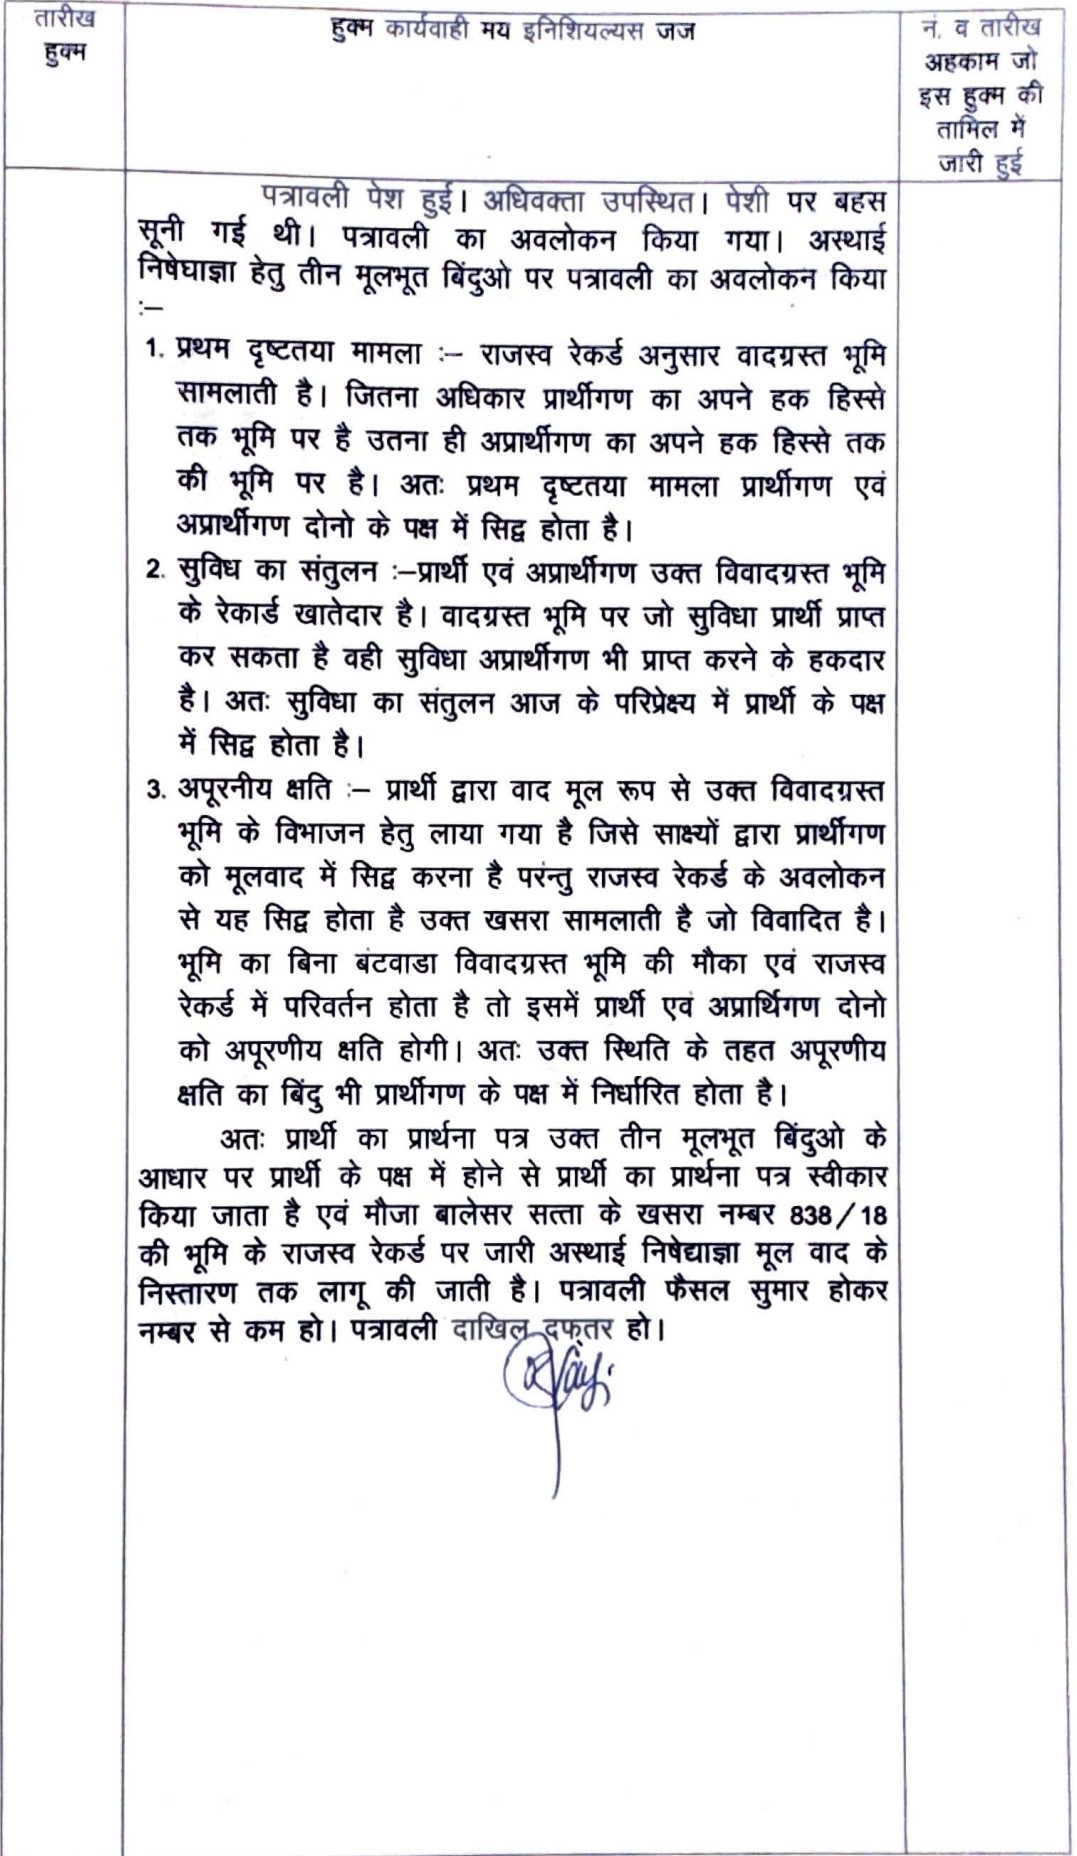 तारीख
हुक्म
हुक्म कार्यवाही मय इनिशियल्यस जज
नं. व तारीख
अहकाम जो
इस हुक्म की
तामिल में
जारी हुई
पत्रावली पेश हुई। अधिवक्ता उपस्थित। पेशी पर बहस
सूनी गई थी। पत्रावली का अवलोकन किया गया। अस्थाई
निषेघाज्ञा हेतु तीन मूलभूत बिंदुओ पर पत्रावली का अवलोकन किया
:–
1. प्रथम दृष्टतया मामला :– राजस्व रेकर्ड अनुसार वादग्रस्त भूमि
सामलाती है। जितना अधिकार प्रार्थीगण का अपने हक हिस्से
तक भूमि पर है उतना ही अप्रार्थीगण का अपने हक हिस्से तक
की भूमि पर है। अतः प्रथम दृष्टतया मामला प्रार्थीगण एवं
अप्रार्थीगण दोनो के पक्ष में सिद्व होता है।
2. सुविध का संतुलन :–प्रार्थी एवं अप्रार्थीगण उक्त विवादग्रस्त भूमि
के रेकार्ड खातेदार है। वादग्रस्त भूमि पर जो सुविधा प्रार्थी प्राप्त
कर सकता है वही सुविधा अप्रार्थीगण भी प्राप्त करने के हकदार
है। अतः सुविधा का संतुलन आज के परिप्रेक्ष्य में प्रार्थी के पक्ष
में सिद्व होता है।
3. अपूरनीय क्षति :– प्रार्थी द्वारा वाद मूल रूप से उक्त विवादग्रस्त
भूमि के विभाजन हेतु लाया गया है जिसे साक्ष्यों द्वारा प्रार्थीगण
को मूलवाद में सिद्व करना है परंन्तु राजस्व रेकर्ड के अवलोकन
से यह सिद्व होता है उक्त खसरा सामलाती है जो विवादित है।
भूमि का बिना बंटवाडा विवादग्रस्त भूमि की मौका एवं राजस्व
रेकर्ड में परिवर्तन होता है तो इसमें प्रार्थी एवं अप्रार्थिगण दोनो
को अपूरणीय क्षति होगी। अतः उक्त स्थिति के तहत अपूरणीय
क्षति का बिंदु भी प्रार्थीगण के पक्ष में निर्धारित होता है।
अतः प्रार्थी का प्रार्थना पत्र उक्त तीन मूलभूत बिंदुओ के
आधार पर प्रार्थी के पक्ष में होने से प्रार्थी का प्रार्थना पत्र स्वीकार
किया जाता है एवं मौजा बालेसर सत्ता के खसरा नम्बर 838/18
की भूमि के राजस्व रेकर्ड पर जारी अस्थाई निषेद्याज्ञा मूल वाद के
निस्तारण तक लागू की जाती है। पत्रावली फैसल सुमार होकर
नम्बर से कम हो। पत्रावली दाखिल दफ्तर हो।